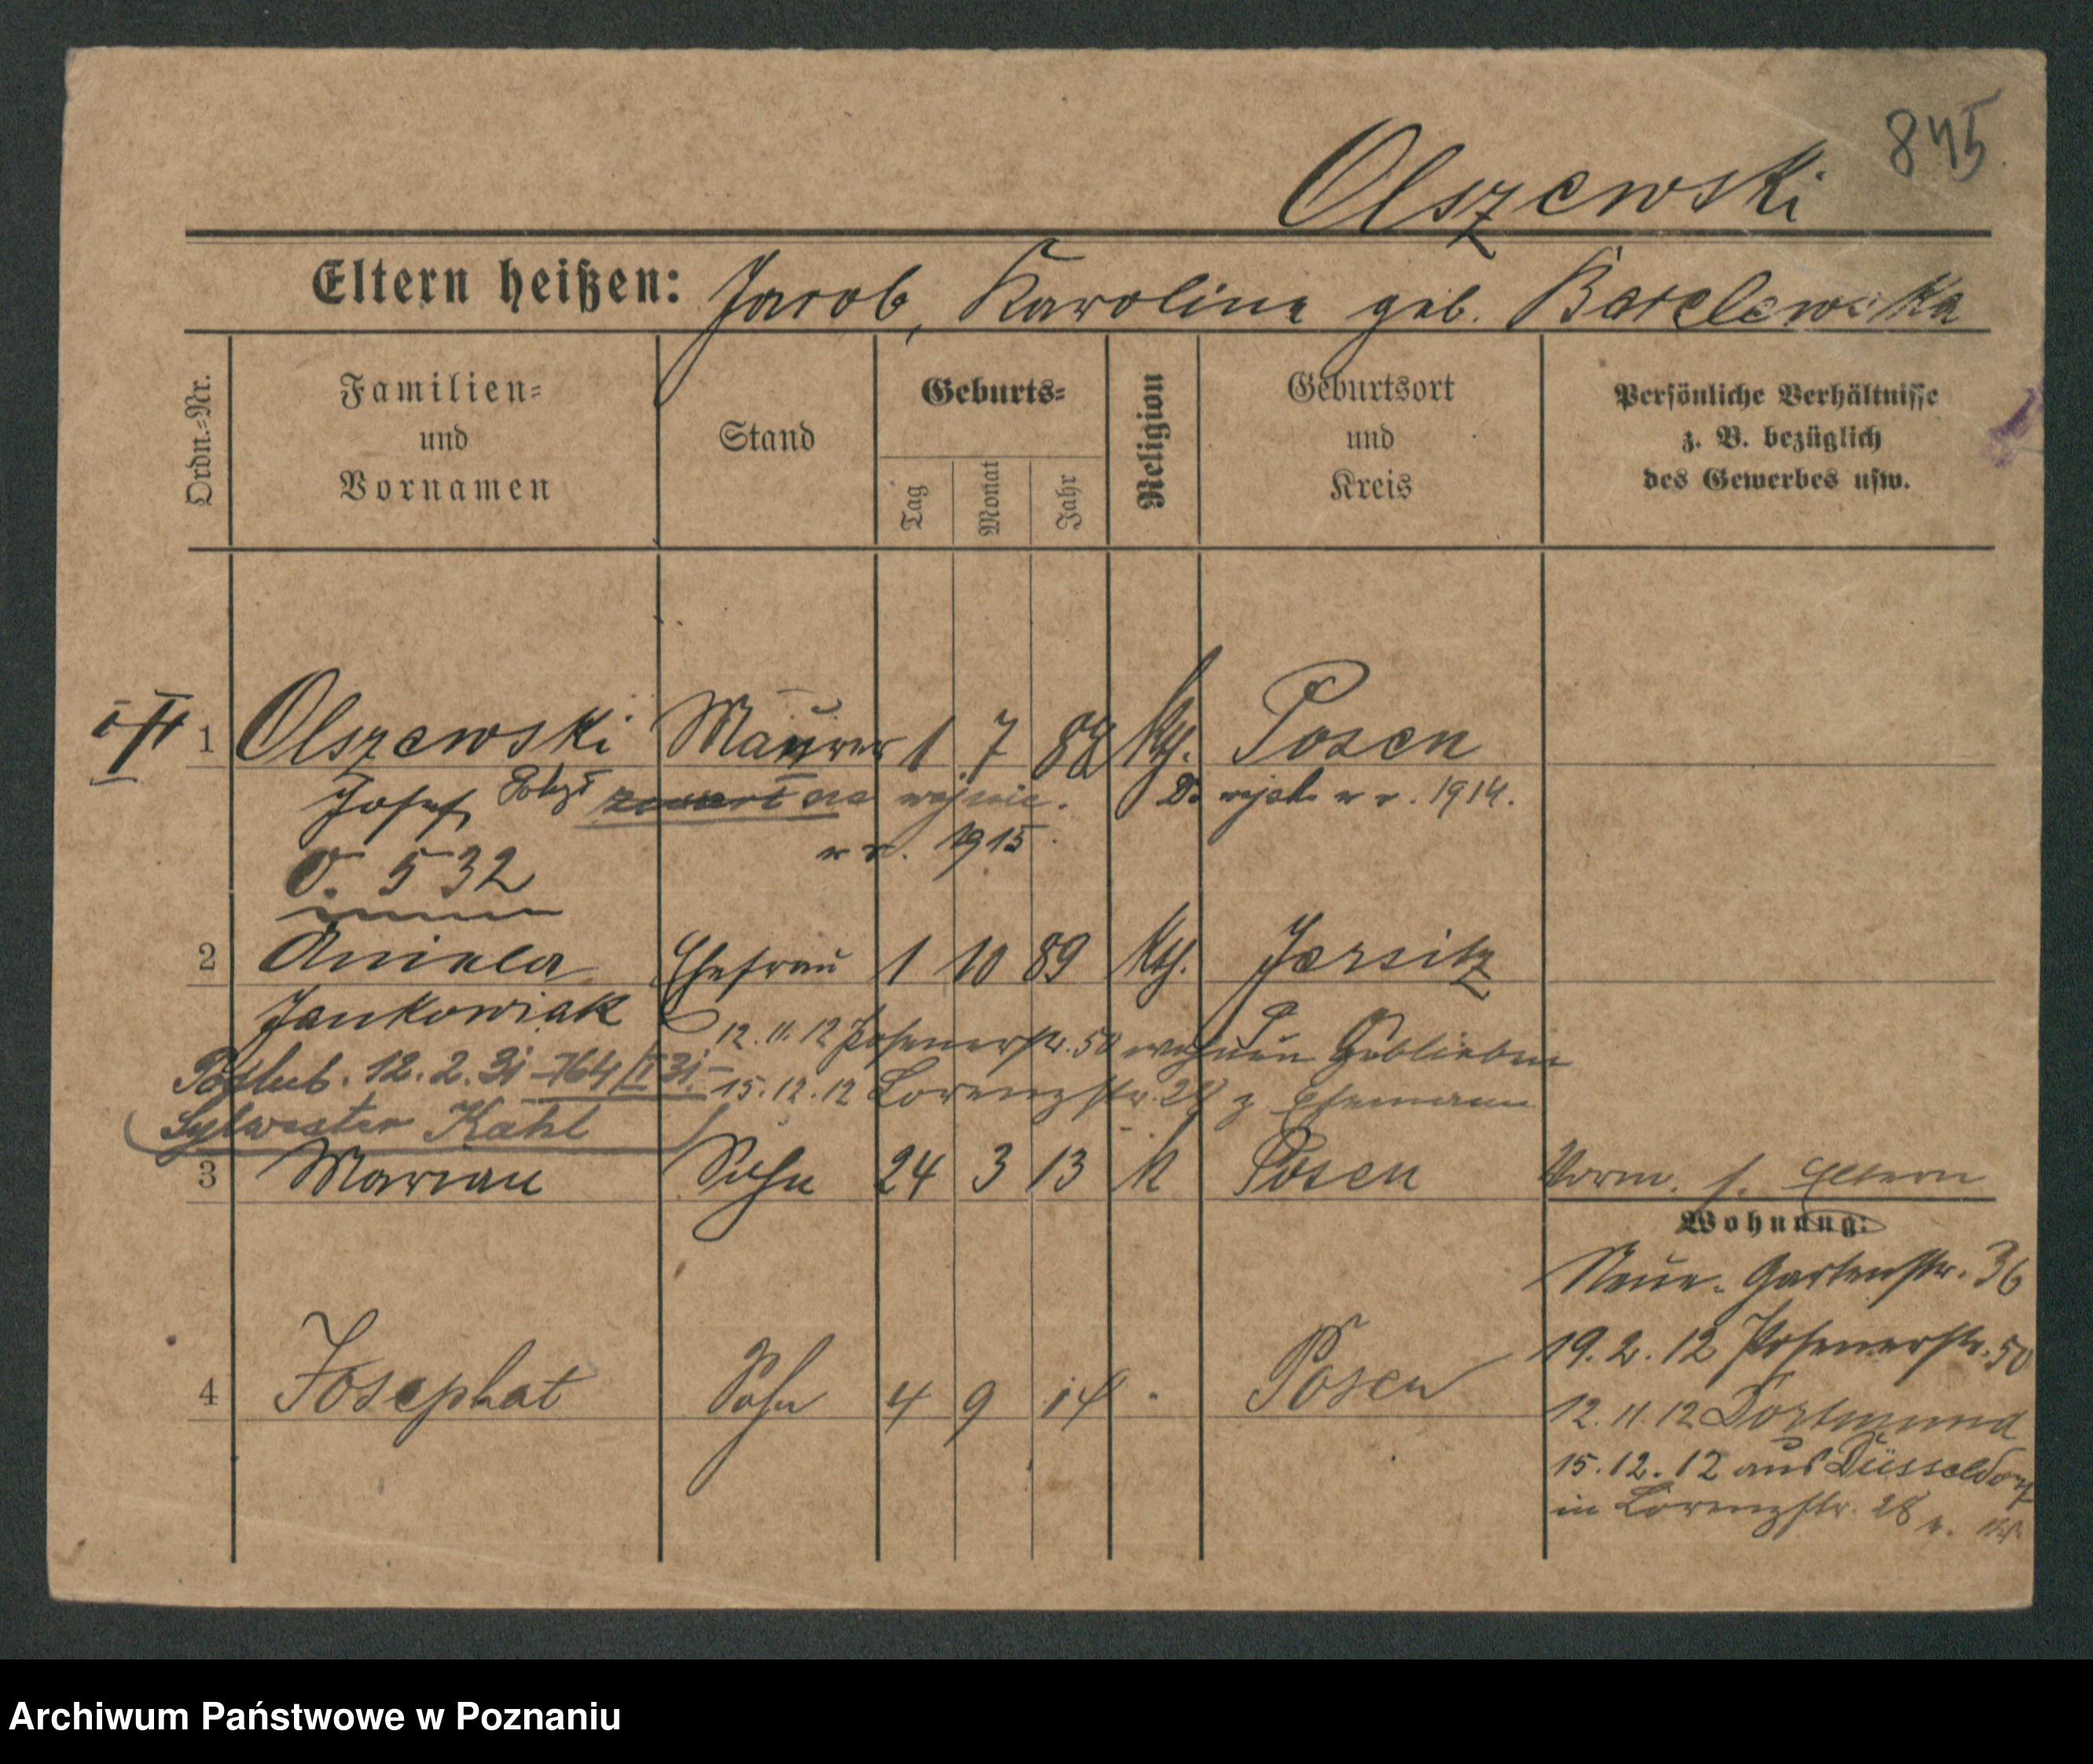 845
Olszewski
Eltern heißen: Jacob, Karolina geb.
Ordn.-Nr.
Familien- und Vornamen
Stand
Geburts-
Tag
Monat
Jahr
Religion
Geburtsort und Kreis
Persönliche Verhältnisse z. B. bezüglich des Gewerbes usw.
1 Olszewski Maurer 1 7 Kth. Posen
Josef na wojnie. w r. 1914.
w r. 1915.
O. 532
2 Aniela Ehefrau 1 10 89 Kth. Jersitz
Jankowiak
12.11.12 Posenerstr. 50 Geblieben
12.2.31 - 764/II 31. - 15.12.12 Lorenzstr. 28 z Ehemann
Sylwester Kahl
3 Marian Sohn 24 3 13 k Posen Eltern
Wohnung:
Neue-Gartenstr. 36
19.2.12 Posenerstr. 50
4 Josephat Sohn 4 9 14 Posen
12.11.12 Dortmund
15.12.12 aus Düsseldorf
in Lorenzstr. 28
Archiwum Państwowe w Poznaniu